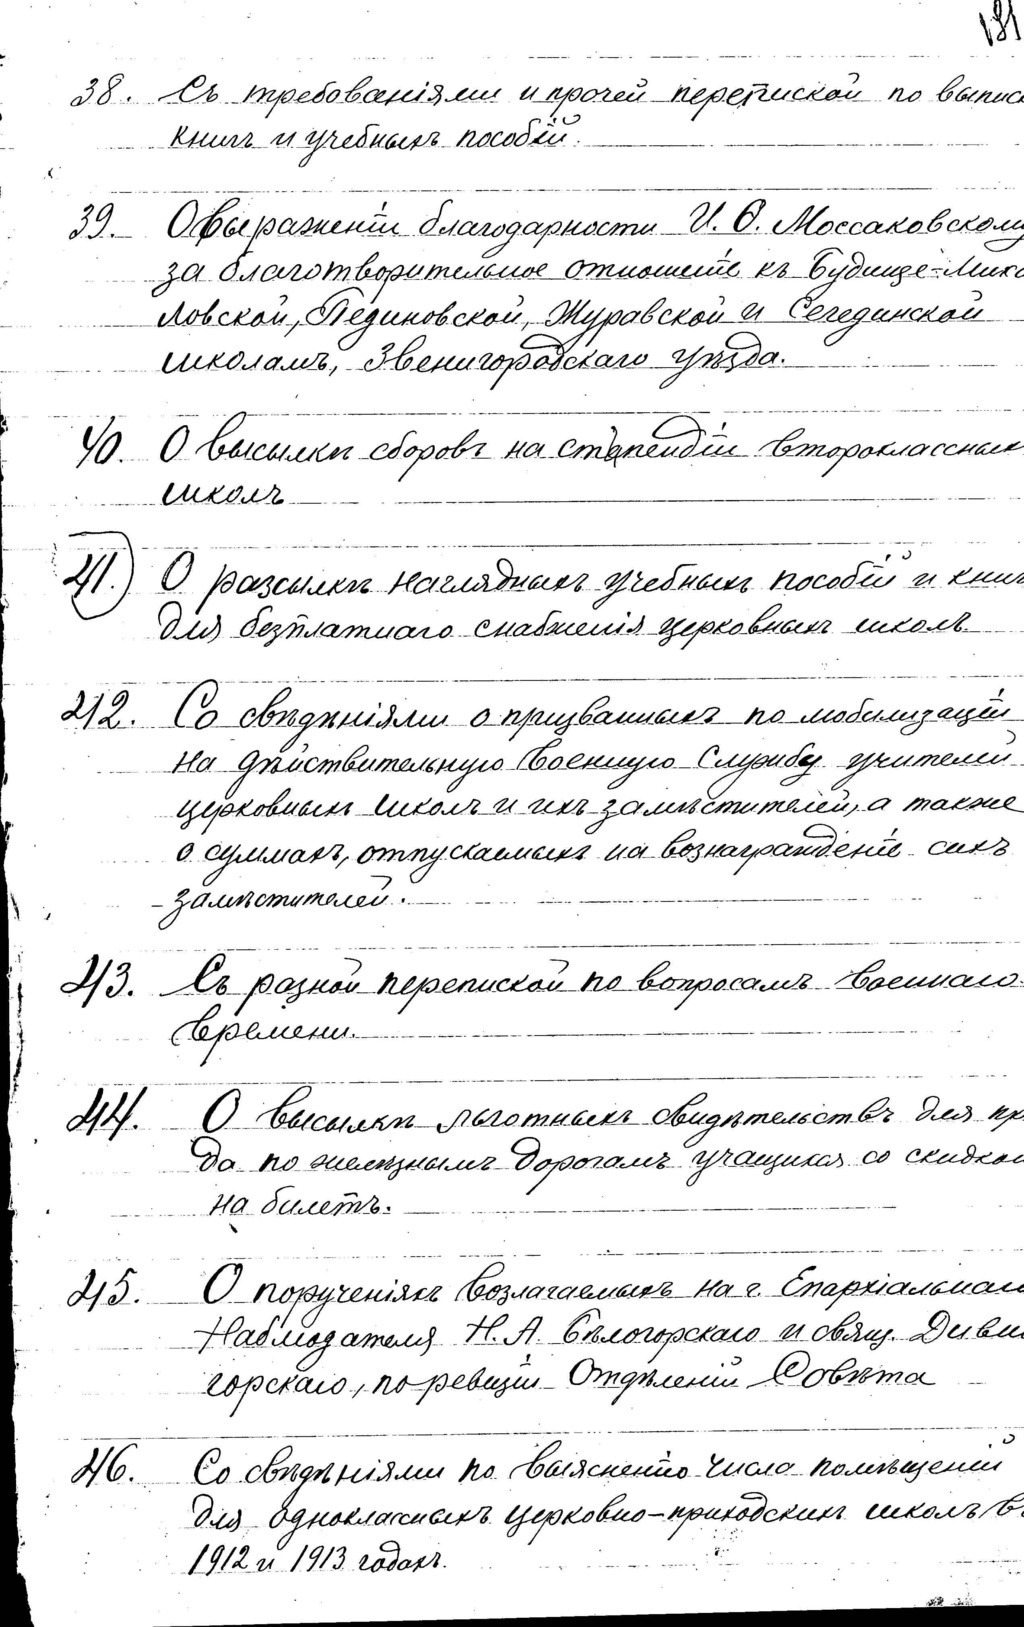 191
38. Съ требованіями и прочей перепиской по выпис
книгъ и учебныхъ пособій.
39. О выраженіи благодарности И. Ѳ. Моссаковскому
за благотворительное отношеніе къ Будище-Мик
ловской, Пединовской, Журавской и Сегединской
школамъ, Звенигородскаго уѣзда.
40. О высылкѣ сборовъ на стипендіи второклассных
школъ
41.) О разсылкѣ наглядныхъ учебныхъ пособій и книг
для безплатнаго снабженія церковныхъ школъ
42. Со свѣдѣніями о призванныхъ по мобилизаціи
на дѣйствительную военную службу учителей
церковныхъ школъ и ихъ замѣстителей, а также
о суммахъ, отпускаемыхъ на вознагражденіе сихъ
замѣстителей.
43. Съ разной перепиской по вопросамъ военнаго
времени.
44. О высылкѣ льготныхъ свидѣтельствъ для пр
да по желѣзнымъ дорогамъ учащихся со скидкой
на билетъ.
45. О порученіяхъ возлагаемыхъ на г. Епархіальнаг
Наблюдателя Н. А. Бѣлогорскаго и свящ. Диви
горскаго, по ревизіи Отдѣленій Совѣта
46. Со свѣдѣніями по выясненію числа помѣщеній
для одноклассныхъ церковно-приходскихъ школъ в
1912 и 1913 годахъ.